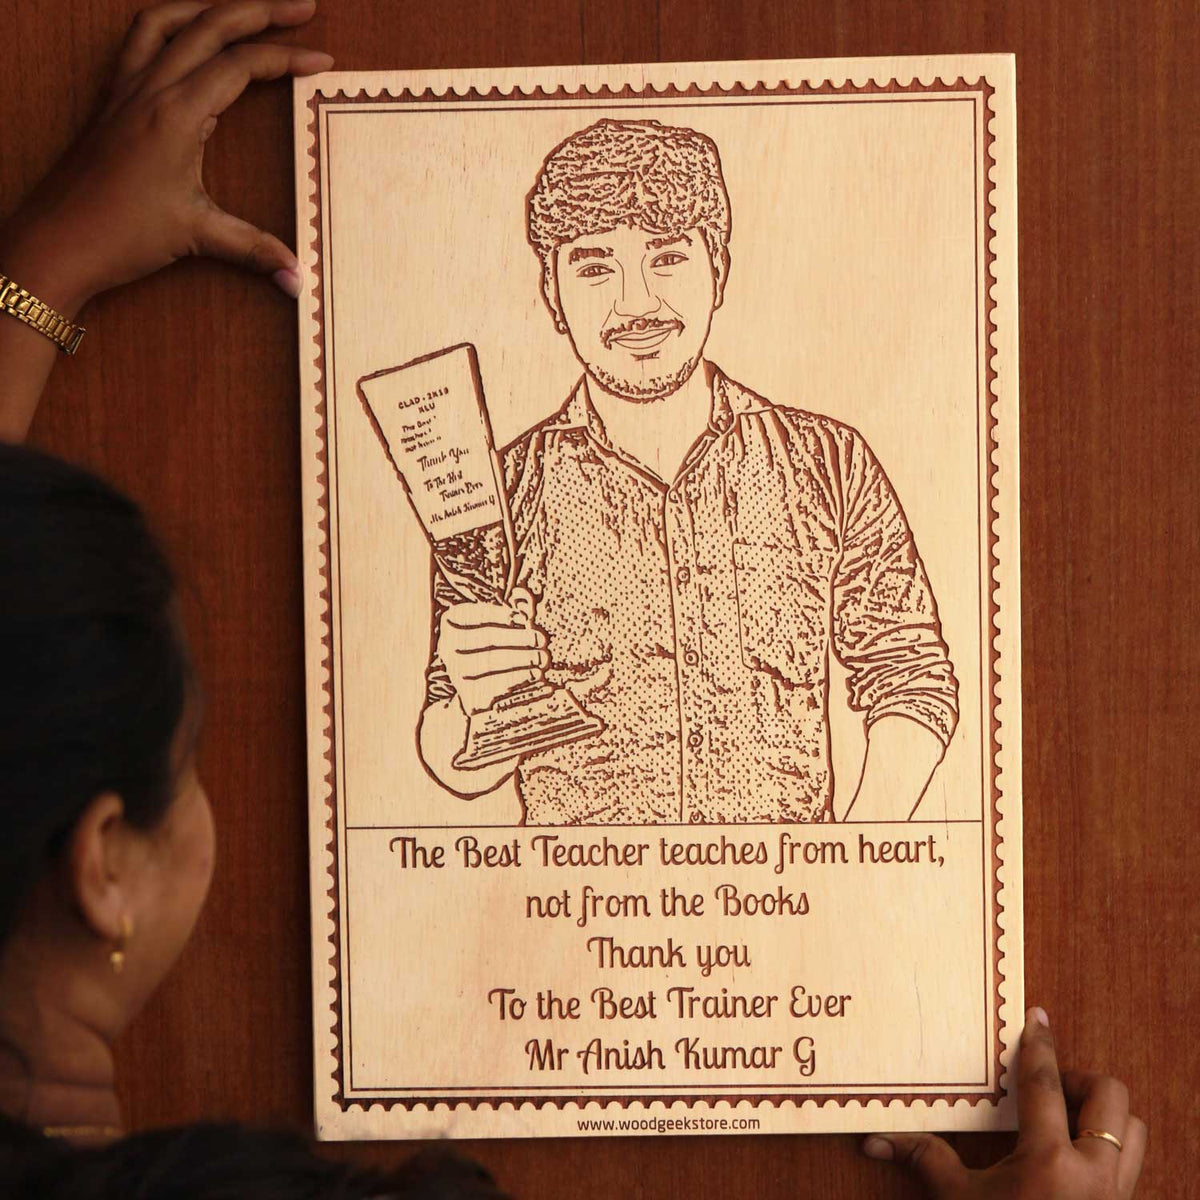 GLAD - 2K18
NLU
The Best
Thank You
To The Best
Trainer Ever
Mr. Anish Kumar G
The Best Teacher teaches from heart,
not from the Books
Thank you
To the Best Trainer Ever
Mr Anish Kumar G
www.woodgeekstore.com